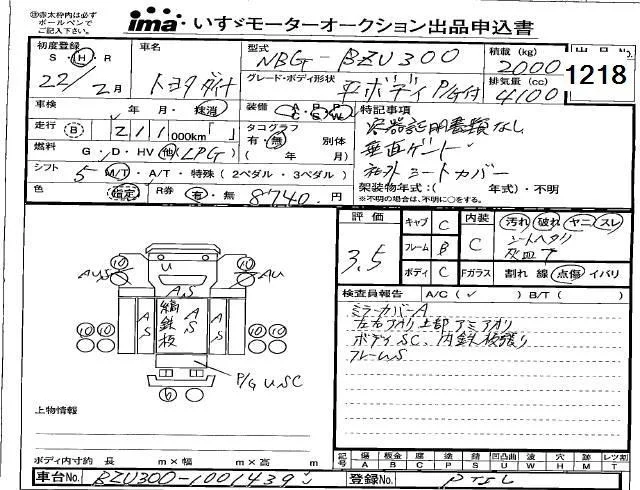 ㊟赤太枠内は必ず
ボールペンで
ご記入下さい
ima いすゞモーターオークション出品申込書
初度登録
S・H・R
22/2月
車名
トヨタ ダイナ
型式
NBG-BZU300
積載 (kg)
2000
出品No.
1218
グレード・ボディ形状
平ボディ P/G付
排気量 (cc)
4100
車検
年 月・抹消
装備
A C P S P W
特記事項
容器証明書類なし
垂直ゲート
社外シートカバー
走行 B 211 000km「 」
タコグラフ
有・無 別体
( 年 月)
燃料 G・D・HV 他(LPG)
シフト 5 M/T・A/T・特殊(2ペダル・3ペダル)
架装物年式:( 年式)・不明
※不明の場合は、不明に○をする。
色 指定 R券 有・無 8740円
評価
3.5
キャブ C
フレーム B
ボディ C
内装
C
汚れ 破れ ヤニ スレ
シートヘタリ
Fガラス 割れ 線 点傷 イバリ
検査員報告 A/C(✓) B/T( )
ミラーカバーA
左右アオリ上部アミアオリ
ボディSC、内鉄板張り
フレームS
10 10 10 10
AUS
U
AU
A,S
AS
縞鉄板
AS
AS
10 10 10 10
P/G USC
6
上物情報
ボディ内寸約 長 m×幅 m×高 m
記号 傷 板金 腐 塗 錆 凹凸曲 波 穴 ネ レツ割
A B C P S U W H M T
車台No. BZU300-1001439
登録No.